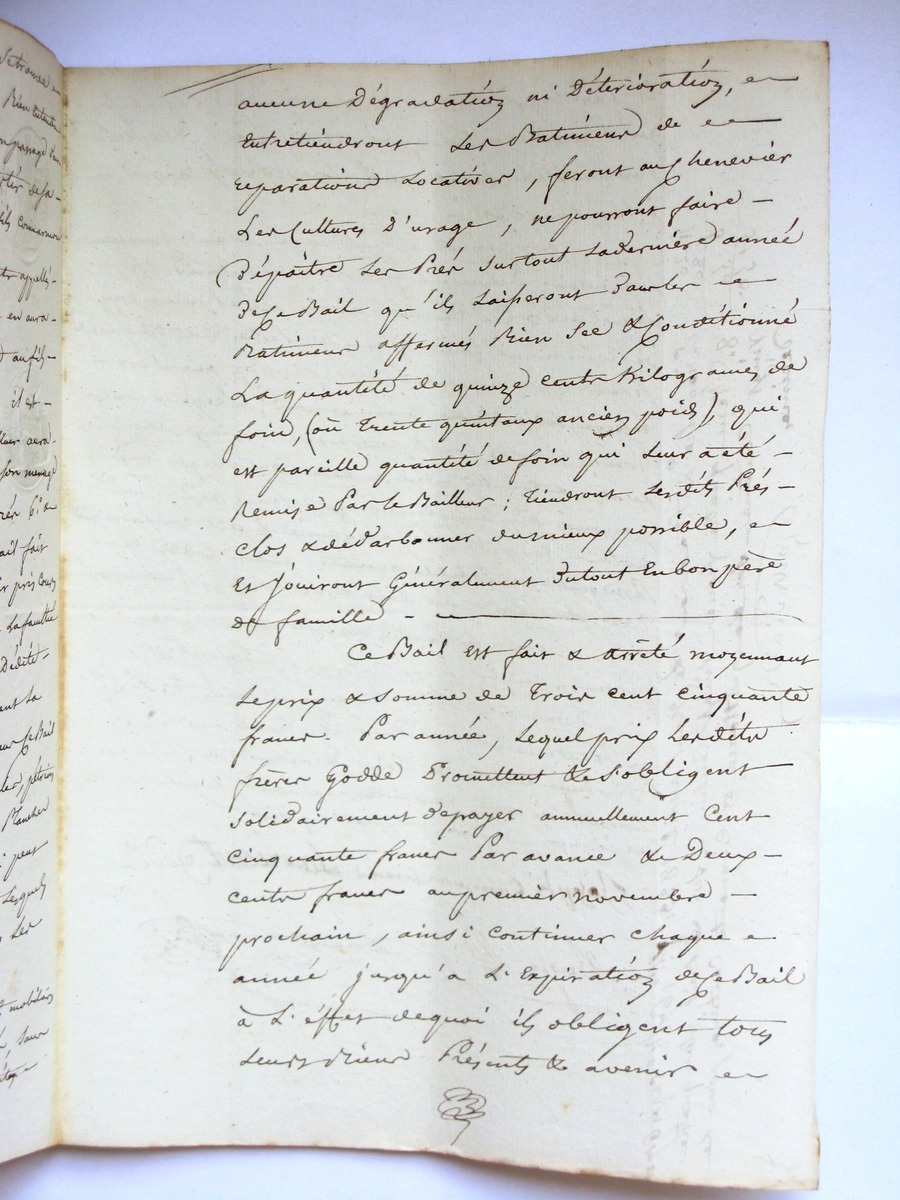 se trouve
Bien entendu
passage
commun
appellés
en aura
au fils
il est
aura
son menage
6°. de
bail fait
pris cours
La famille
dédite
Bail
Plancher
peut
Lesquels
Les
mobiliers
sauf
aucune Dégradation ni Détérioration,
Entretiendront Les Batimens de
reparations Locatives, feront au Chenevier
Les Cultures D'usage, ne pourront faire –
Dépaître Les Prés surtout La dernière année
De Ce Bail qu'ils Laisseront Dans les
Batimens affermés Bien Sec & Conditionné
La quantité de quinze cents Kilogrames de
foin, (ou Trente quintaux ancien poids), qui
est pareille quantité de foin qui Leur a été –
Remise Par le Bailleur ; Tiendront Lesdits Prés –
clos & du mieux possible,
Et Jouiront Généralement Du tout En bon père
de famille –
Ce Bail Est fait & arrêté moyennant
Le prix & Somme de Trois cent cinquante
francs. Par année, Lequel prix Lesdits
frères Godde Promettent & S'obligent
Solidairement de payer annuellement Cent
cinquante francs Par avance & Deux –
cents francs au premier novembre –
prochain, ainsi continuer chaque
année jusqu'a L'Expiration de Ce Bail
à L'effet de quoi ils obligent tous
Leurs Biens Présents & avenir